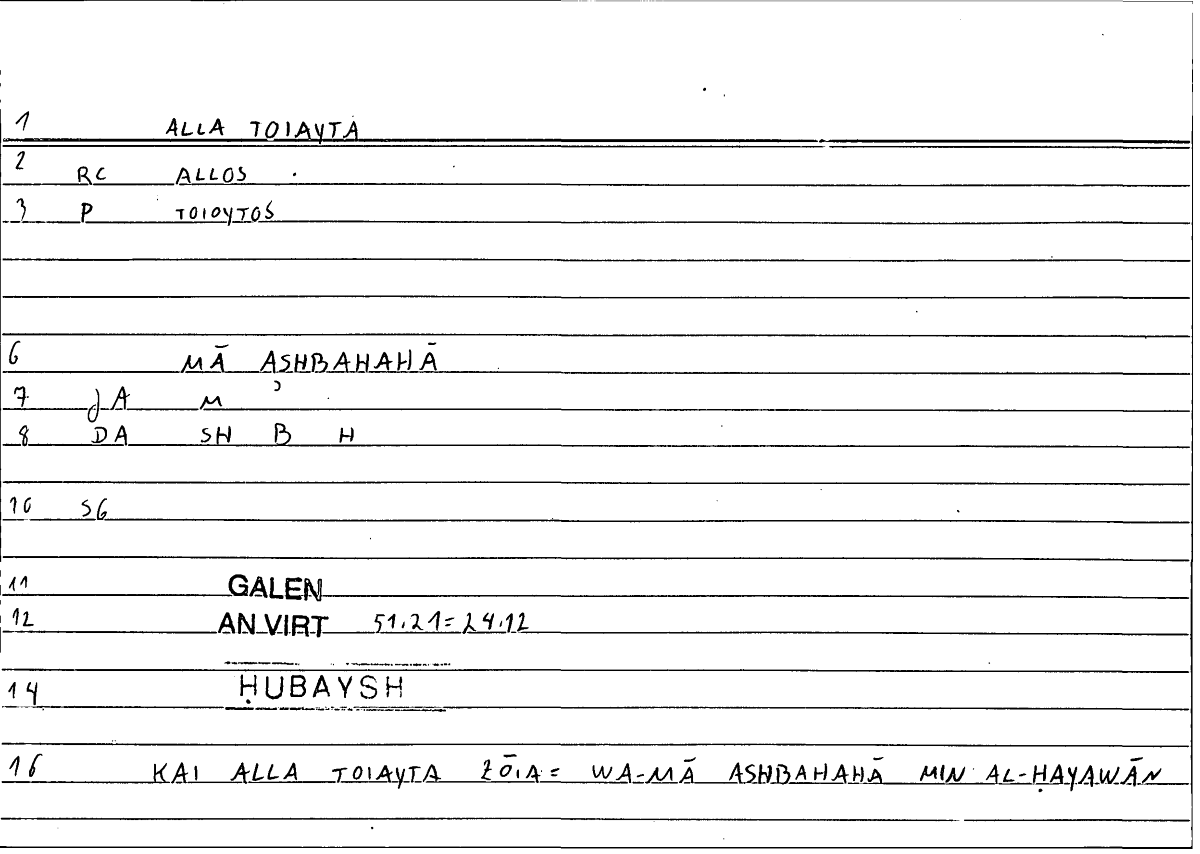 1 ALLA TOIAYTA
2 RC ALLOS
3 P TOIOYTOS
6 MĀ ASHBAHAHĀ
7 JA M ʾ
8 DA SH B H
10 SG
11 GALEN
12 AN VIRT 51.21=24.12
14 ḤUBAYSH
16 KAI ALLA TOIAYTA ZŌIA= WA-MĀ ASHBAHAHĀ MIN AL-ḤAYAWĀN